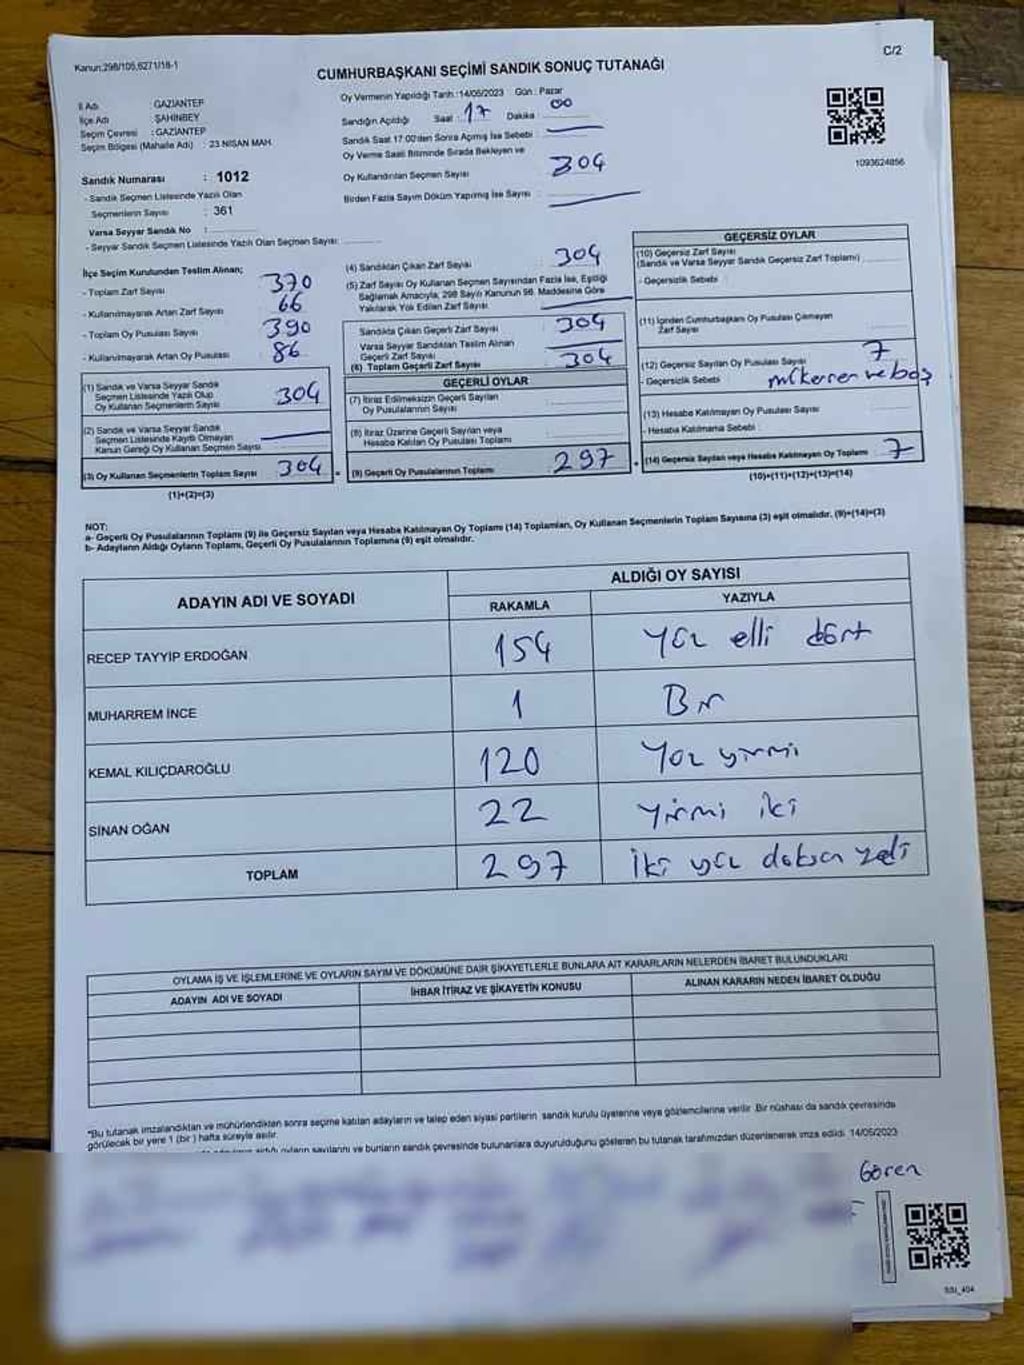 Kanun:298/105,6271/18-1
C/2
CUMHURBAŞKANI SEÇİMİ SANDIK SONUÇ TUTANAĞI
İl Adı : GAZİANTEP
İlçe Adı : ŞAHİNBEY
Seçim Çevresi : GAZİANTEP
Seçim Bölgesi (Mahalle Adı) : 23 NİSAN MAH.
Sandık Numarası : 1012
- Sandık Seçmen Listesinde Yazılı Olan
Seçmenlerin Sayısı : 361
Varsa Seyyar Sandık No :
- Seyyar Sandık Seçmen Listesinde Yazılı Olan Seçmen Sayısı:
Oy Vermenin Yapıldığı Tarih :14/05/2023 Gün : Pazar
Sandığın Açıldığı Saat : 17 Dakika : 00
Sandık Saat 17:00'den Sonra Açılmış İse Sebebi :
Oy Verme Saati Bitiminde Sırada Bekleyen ve
Oy Kullandırılan Seçmen Sayısı : 304
Birden Fazla Sayım Döküm Yapılmış İse Sayısı :
1093624856
İlçe Seçim Kurulundan Teslim Alınan;
- Toplam Zarf Sayısı : 370
- Kullanılmayarak Artan Zarf Sayısı : 66
- Toplam Oy Pusulası Sayısı : 390
- Kullanılmayarak Artan Oy Pusulası : 86
(1) Sandık ve Varsa Seyyar Sandık
Seçmen Listesinde Yazılı Olup
Oy Kullanan Seçmenlerin Sayısı 304
(2) Sandık ve Varsa Seyyar Sandık
Seçmen Listesinde Kayıtlı Olmayan
Kanun Gereği Oy Kullanan Seçmen Sayısı
(3) Oy Kullanan Seçmenlerin Toplam Sayısı 304
(1)+(2)=(3)
(4) Sandıktan Çıkan Zarf Sayısı : 304
(5) Zarf Sayısı Oy Kullanan Seçmen Sayısından Fazla İse, Eşitliği
Sağlamak Amacıyla, 298 Sayılı Kanunun 98. Maddesine Göre
Yakılarak Yok Edilen Zarf Sayısı :
Sandıkta Çıkan Geçerli Zarf Sayısı : 304
Varsa Seyyar Sandıktan Teslim Alınan
Geçerli Zarf Sayısı
(6) Toplam Geçerli Zarf Sayısı : 304
GEÇERLİ OYLAR
(7) İtiraz Edilmeksizin Geçerli Sayılan
Oy Pusulalarının Sayısı :
(8) İtiraz Üzerine Geçerli Sayılan veya
Hesaba Katılan Oy Pusulası Toplamı :
(9) Geçerli Oy Pusulalarının Toplamı : 297
GEÇERSİZ OYLAR
(10) Geçersiz Zarf Sayısı
(Sandık ve Varsa Seyyar Sandık Geçersiz Zarf Toplamı)
- Geçersizlik Sebebi :
(11) İçinden Cumhurbaşkanı Oy Pusulası Çıkmayan
Zarf Sayısı
(12) Geçersiz Sayılan Oy Pusulası Sayısı 7
- Geçersizlik Sebebi : mükerrer ve boş
(13) Hesaba Katılmayan Oy Pusulası Sayısı
- Hesaba Katılmama Sebebi :
(14) Geçersiz Sayılan veya Hesaba Katılmayan Oy Toplamı 7
(10)+(11)+(12)+(13)=(14)
NOT:
a- Geçerli Oy Pusulalarının Toplamı (9) ile Geçersiz Sayılan veya Hesaba Katılmayan Oy Toplamı (14) Toplamları, Oy Kullanan Seçmenlerin Toplam Sayısına (3) eşit olmalıdır. (9)+(14)=(3)
b- Adayların Aldığı Oyların Toplamı, Geçerli Oy Pusulalarının Toplamına (9) eşit olmalıdır.
ADAYIN ADI VE SOYADI
ALDIĞI OY SAYISI
RAKAMLA YAZIYLA
RECEP TAYYİP ERDOĞAN 154 yüz elli dört
MUHARREM İNCE 1 Bir
KEMAL KILIÇDAROĞLU 120 yüz yirmi
SİNAN OĞAN 22 yirmi iki
TOPLAM 297 iki yüz doksan yedi
OYLAMA İŞ VE İŞLEMLERİNE VE OYLARIN SAYIM VE DÖKÜMÜNE DAİR ŞİKAYETLERLE BUNLARA AİT KARARLARIN NELERDEN İBARET BULUNDUKLARI
ADAYIN ADI VE SOYADI İHBAR İTİRAZ VE ŞİKAYETİN KONUSU ALINAN KARARIN NEDEN İBARET OLDUĞU
"Bu tutanak imzalandıktan ve mühürlendikten sonra seçime katılan adayların ve talep eden siyasi partilerin sandık kurulu üyelerine veya gözlemcilerine verilir. Bir nüshası da sandık çevresinde
görülecek bir yere 1 (bir) hafta süreyle asılır.
aldığı oyların sayılarını ve bunların sandık çevresinde bulunanlara duyurulduğunu gösteren bu tutanak tarafımızdan düzenlenerek imza edildi. 14/05/2023
Gören
SSI_404